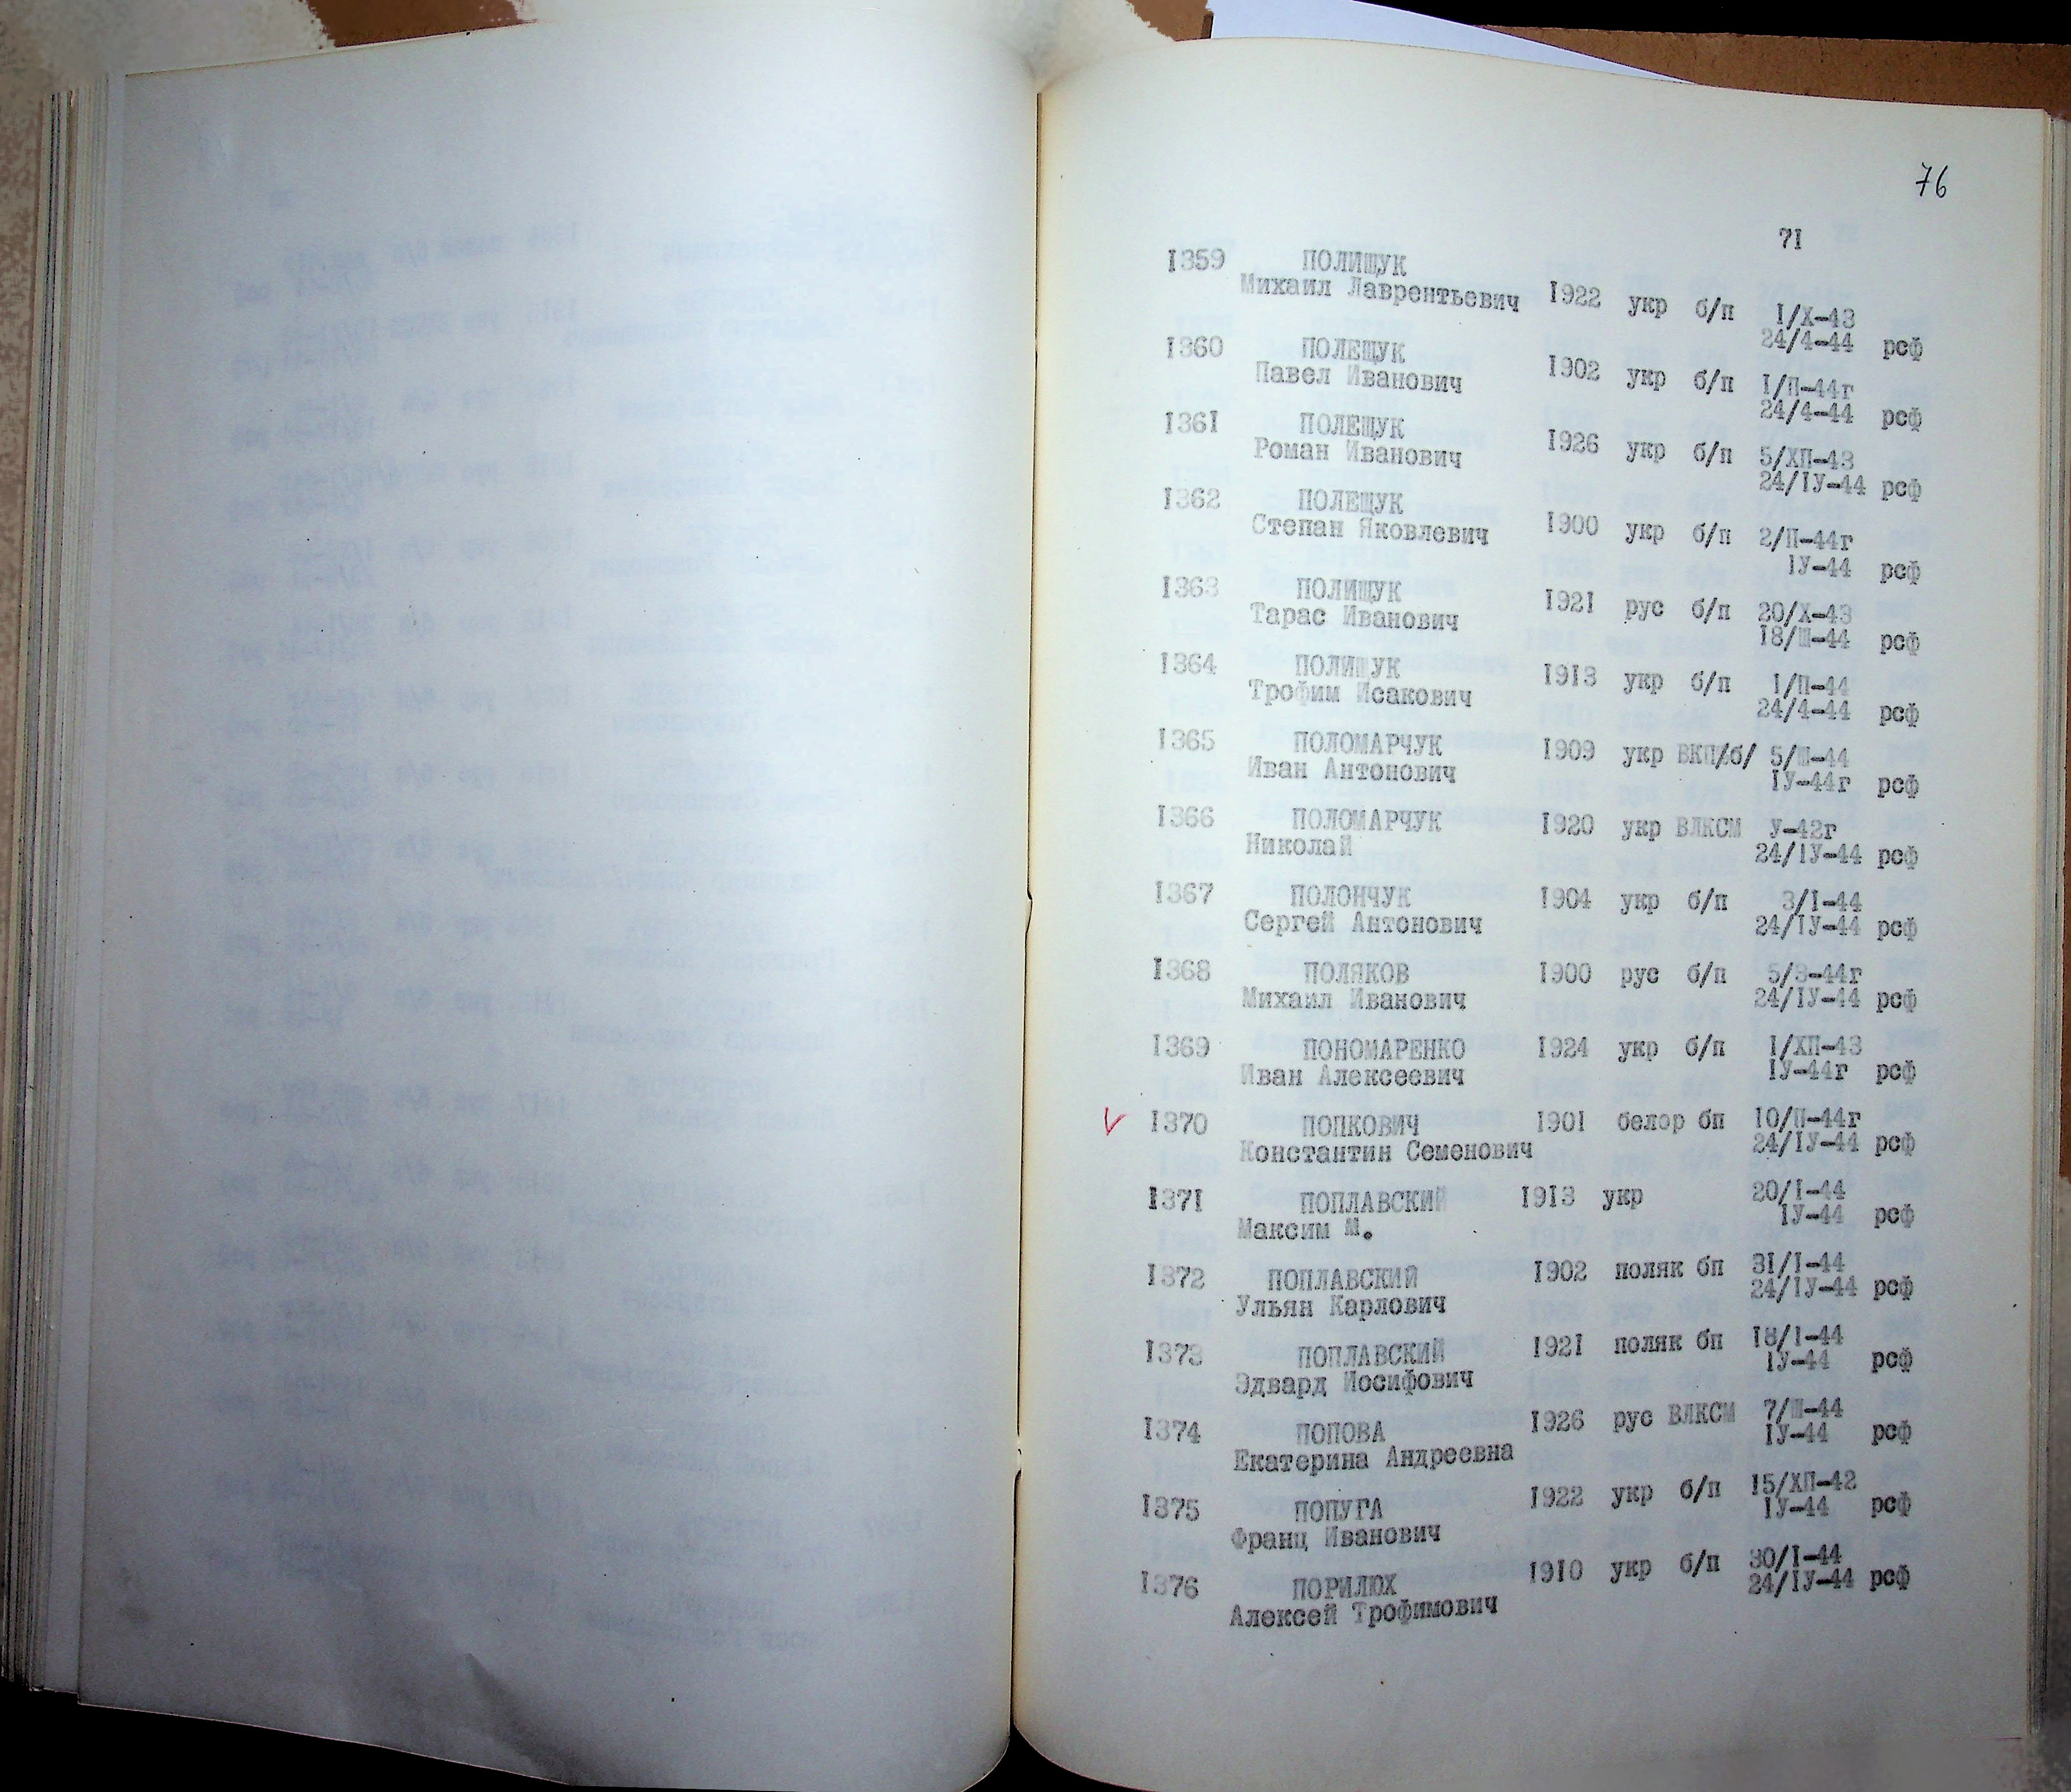 76
71
1359 ПОЛИЩУК
Михаил Лаврентьевич 1922 укр б/п 1/Х-43
24/4-44 рсф
1360 ПОЛЕЩУК
Павел Иванович 1902 укр б/п 1/П-44г
24/4-44 рсф
1361 ПОЛЕЩУК
Роман Иванович 1926 укр б/п 5/ХП-43
24/IУ-44 рсф
1362 ПОЛЕЩУК
Степан Яковлевич 1900 укр б/п 2/П-44г
IУ-44 рсф
1363 ПОЛИЩУК
Тарас Иванович 1921 рус б/п 20/Х-43
18/Ш-44 рсф
1364 ПОЛИЩУК
Трофим Исакович 1913 укр б/п 1/П-44
24/4-44 рсф
1365 ПОЛОМАРЧУК 1909 укр ВКП/б/ 5/Ш-44
Иван Антонович IУ-44г рсф
1366 ПОЛОМАРЧУК 1920 укр ВЛКСМ У-42г
Николай 24/IУ-44 рсф
1367 ПОЛОНЧУК 1904 укр б/п 3/I-44
Сергей Антонович 24/IУ-44 рсф
1368 ПОЛЯКОВ 1900 рус б/п 5/3-44г
Михаил Иванович 24/IУ-44 рсф
1369 ПОНОМАРЕНКО 1924 укр б/п 1/ХП-43
Иван Алексеевич IУ-44г рсф
V 1370 ПОПКОВИЧ 1901 белор бп 10/П-44г
Константин Семенович 24/IУ-44 рсф
1371 ПОПЛАВСКИЙ 1913 укр 20/I-44
Максим М. IУ-44 рсф
1372 ПОПЛАВСКИЙ 1902 поляк бп 31/I-44
Ульян Карлович 24/IУ-44 рсф
1373 ПОПЛАВСКИЙ 1921 поляк бп 18/I-44
Эдвард Иосифович IУ-44 рсф
1374 ПОПОВА 1926 рус ВЛКСМ 7/Ш-44
Екатерина Андреевна IУ-44 рсф
1375 ПОПУГА 1922 укр б/п 15/ХП-42
Франц Иванович IУ-44 рсф
1376 ПОРИЛЮХ 1910 укр б/п 30/I-44
Алексей Трофимович 24/IУ-44 рсф